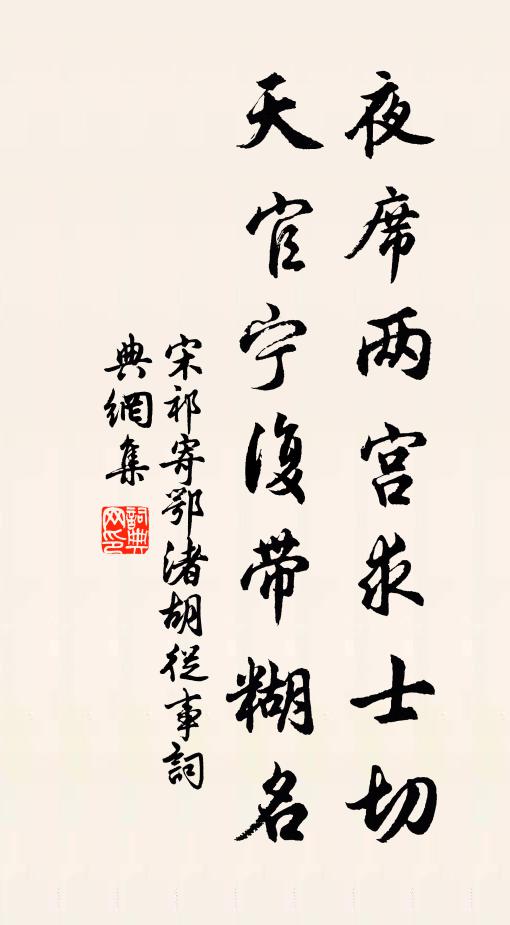 夜席两宫求士切
天官宁復带糊名
宋祁寄鄂渚胡従事詞
典網集
詞典网印